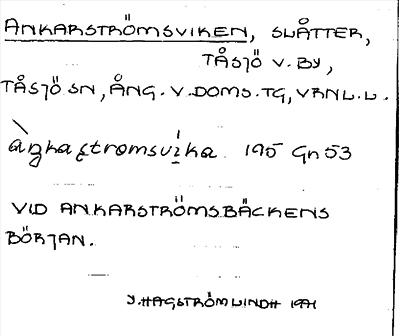 ANKARSTRÖMSVIKEN, SLÅTTER,
TÅSJÖ V. BY,
TÅSJÖ SN, ÅNG. V. DOMS. TG, VRNL.L.
àŋkaʂtromsvi̱ka 195 Gn 53
VID ANKARSTRÖMSBÄCKENS
BÖRJAN.
Y. HAGSTRÖM LINDH 1971